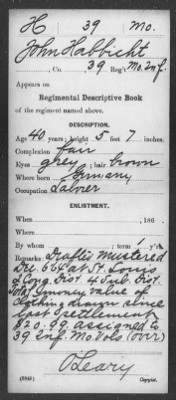 H 39 Mo.
John Habbicht
, Co. , 39 Reg't Mo. Inf.
Appears on
Regimental Descriptive Book
of the regiment named above.
DESCRIPTION.
Age 40 years; height 5 feet 7 inches.
Complexion fair
Eyes grey; hair brown
Where born Germany
Occupation Laborer
ENLISTMENT.
When , 186 .
Where
By whom ; term 1 y'rs.
Remarks: Drafted mustered
Dec. 6 64 at St. Louis
2 Cong. Dist 4 Sub. Dist.
Total money value of
clothing drawn since
last settlement
$20.99. assigned to
39 Inf. Mo Vols (over)
O'Leary
Copyist.